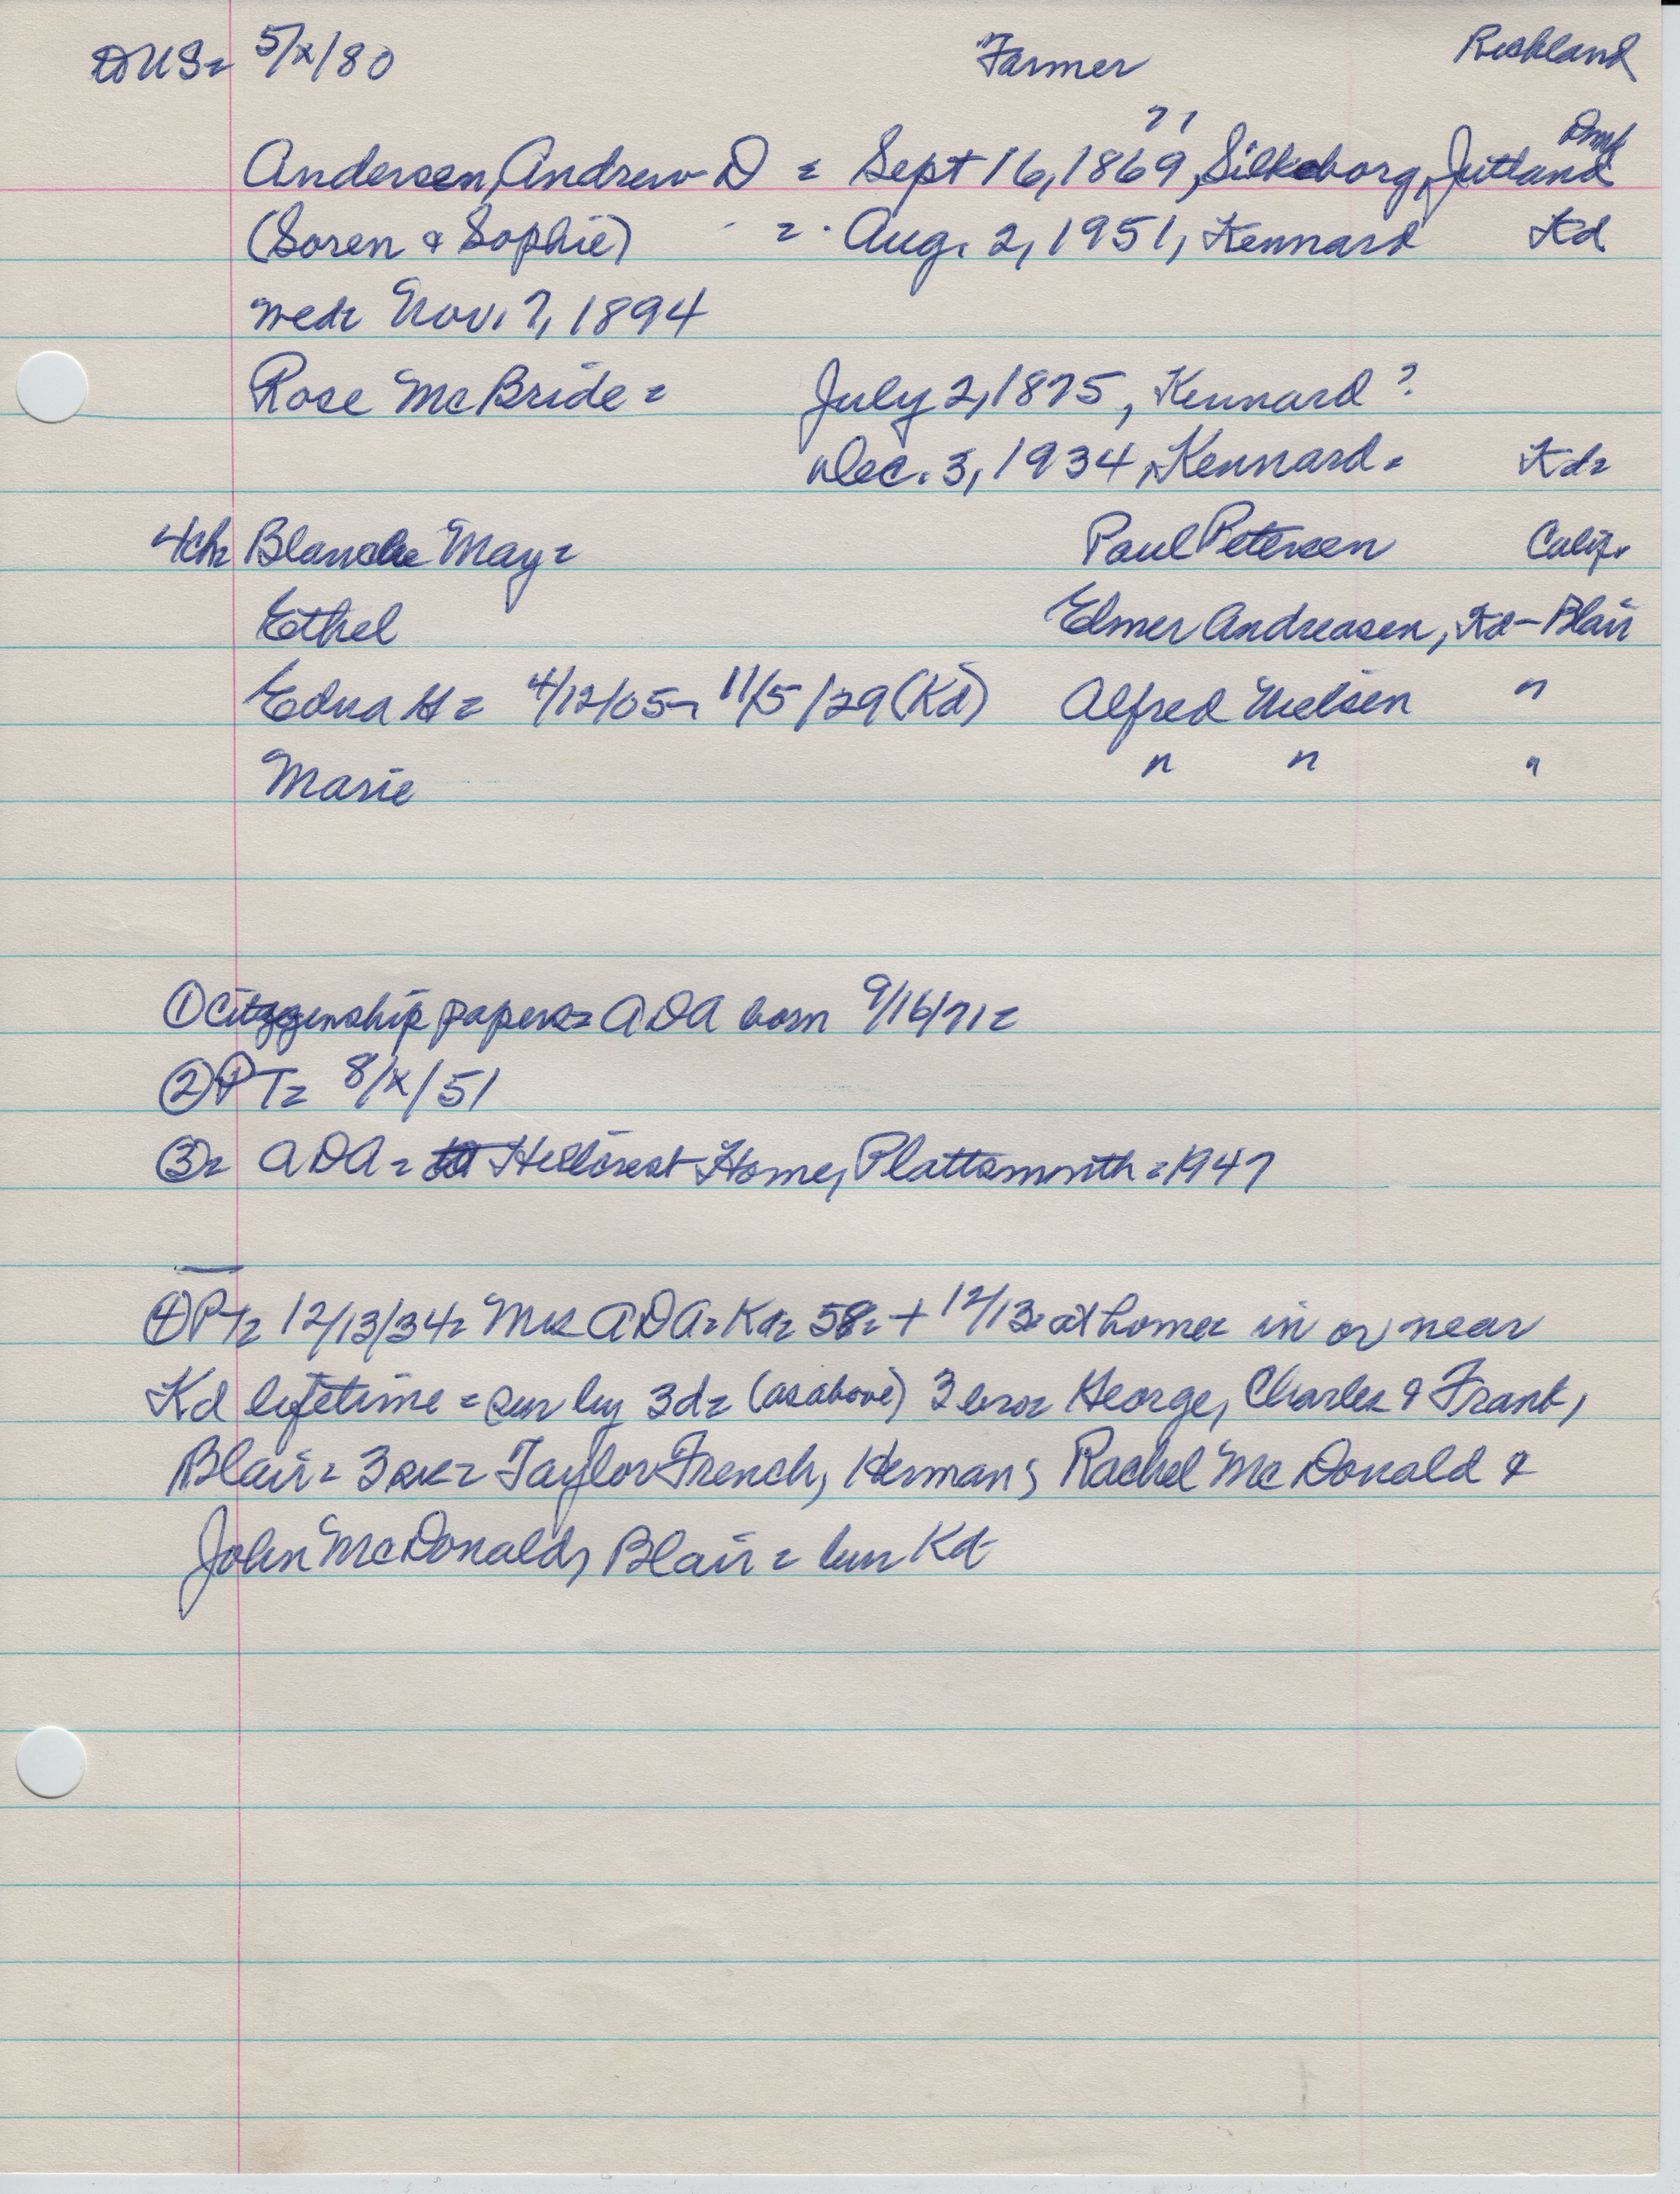 DUS= 5/x/80 Farmer Richland
71 Dmk
Andersen, Andrew D = Sept 16, 1869, Silkeborg, Jutland
(Soren & Sophie) = Aug. 2, 1951, Kennard Kd
wed= Nov. 7, 1894
Rose McBride = July 2, 1875, Kennard ?
Dec. 3, 1934, Kennard = Kd=
4ch= Blanche May = Paul Petersen Calif.
Ethel Elmer Andreasen, Kd-Blair
Edna H = 4/12/05- 11/5/29 (Kd) Alfred Nielsen "
Marie " " "
① Citzgenship papers= ADA born 9/16/71=
② PT= 8/x/51
③= ADA = Hillcrest Home, Plattsmouth = 1947
④ PT= 12/13/34= Mrs ADA= Kd= 58= + 12/13= at home= in or near
Kd lifetime = sur by 3d= (as above) 3 bro= George, Charles & Frank,
Blair = 3 sis= Taylor French, Herman; Rachel McDonald &
John McDonald, Blair = bur Kd